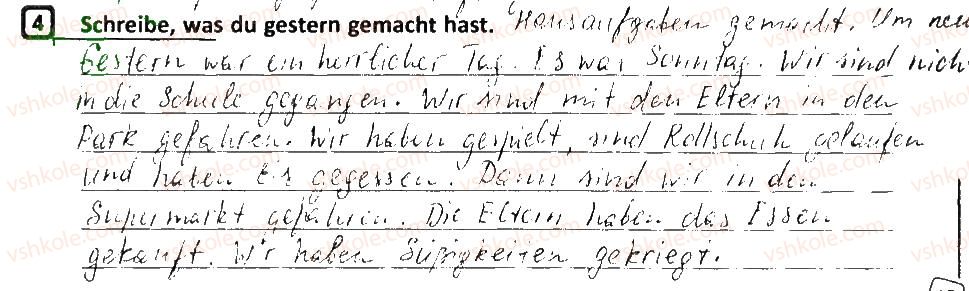 4 Schreibe, was du gestern gemacht hast. Hausaufgaben gemacht. Um neu
Gestern war ein herrlicher Tag. Es war Sonntag. Wir sind nich
in die Schule gegangen. Wir sind mit den Eltern in den
Park gefahren. Wir haben gespielt, sind Rollschuh gelaufen
und haben Eis gegessen. Dann sind wir in den
Supermarkt gefahren. Die Eltern haben das Essen
gekauft. Wir haben Süßigkeiten gekriegt.